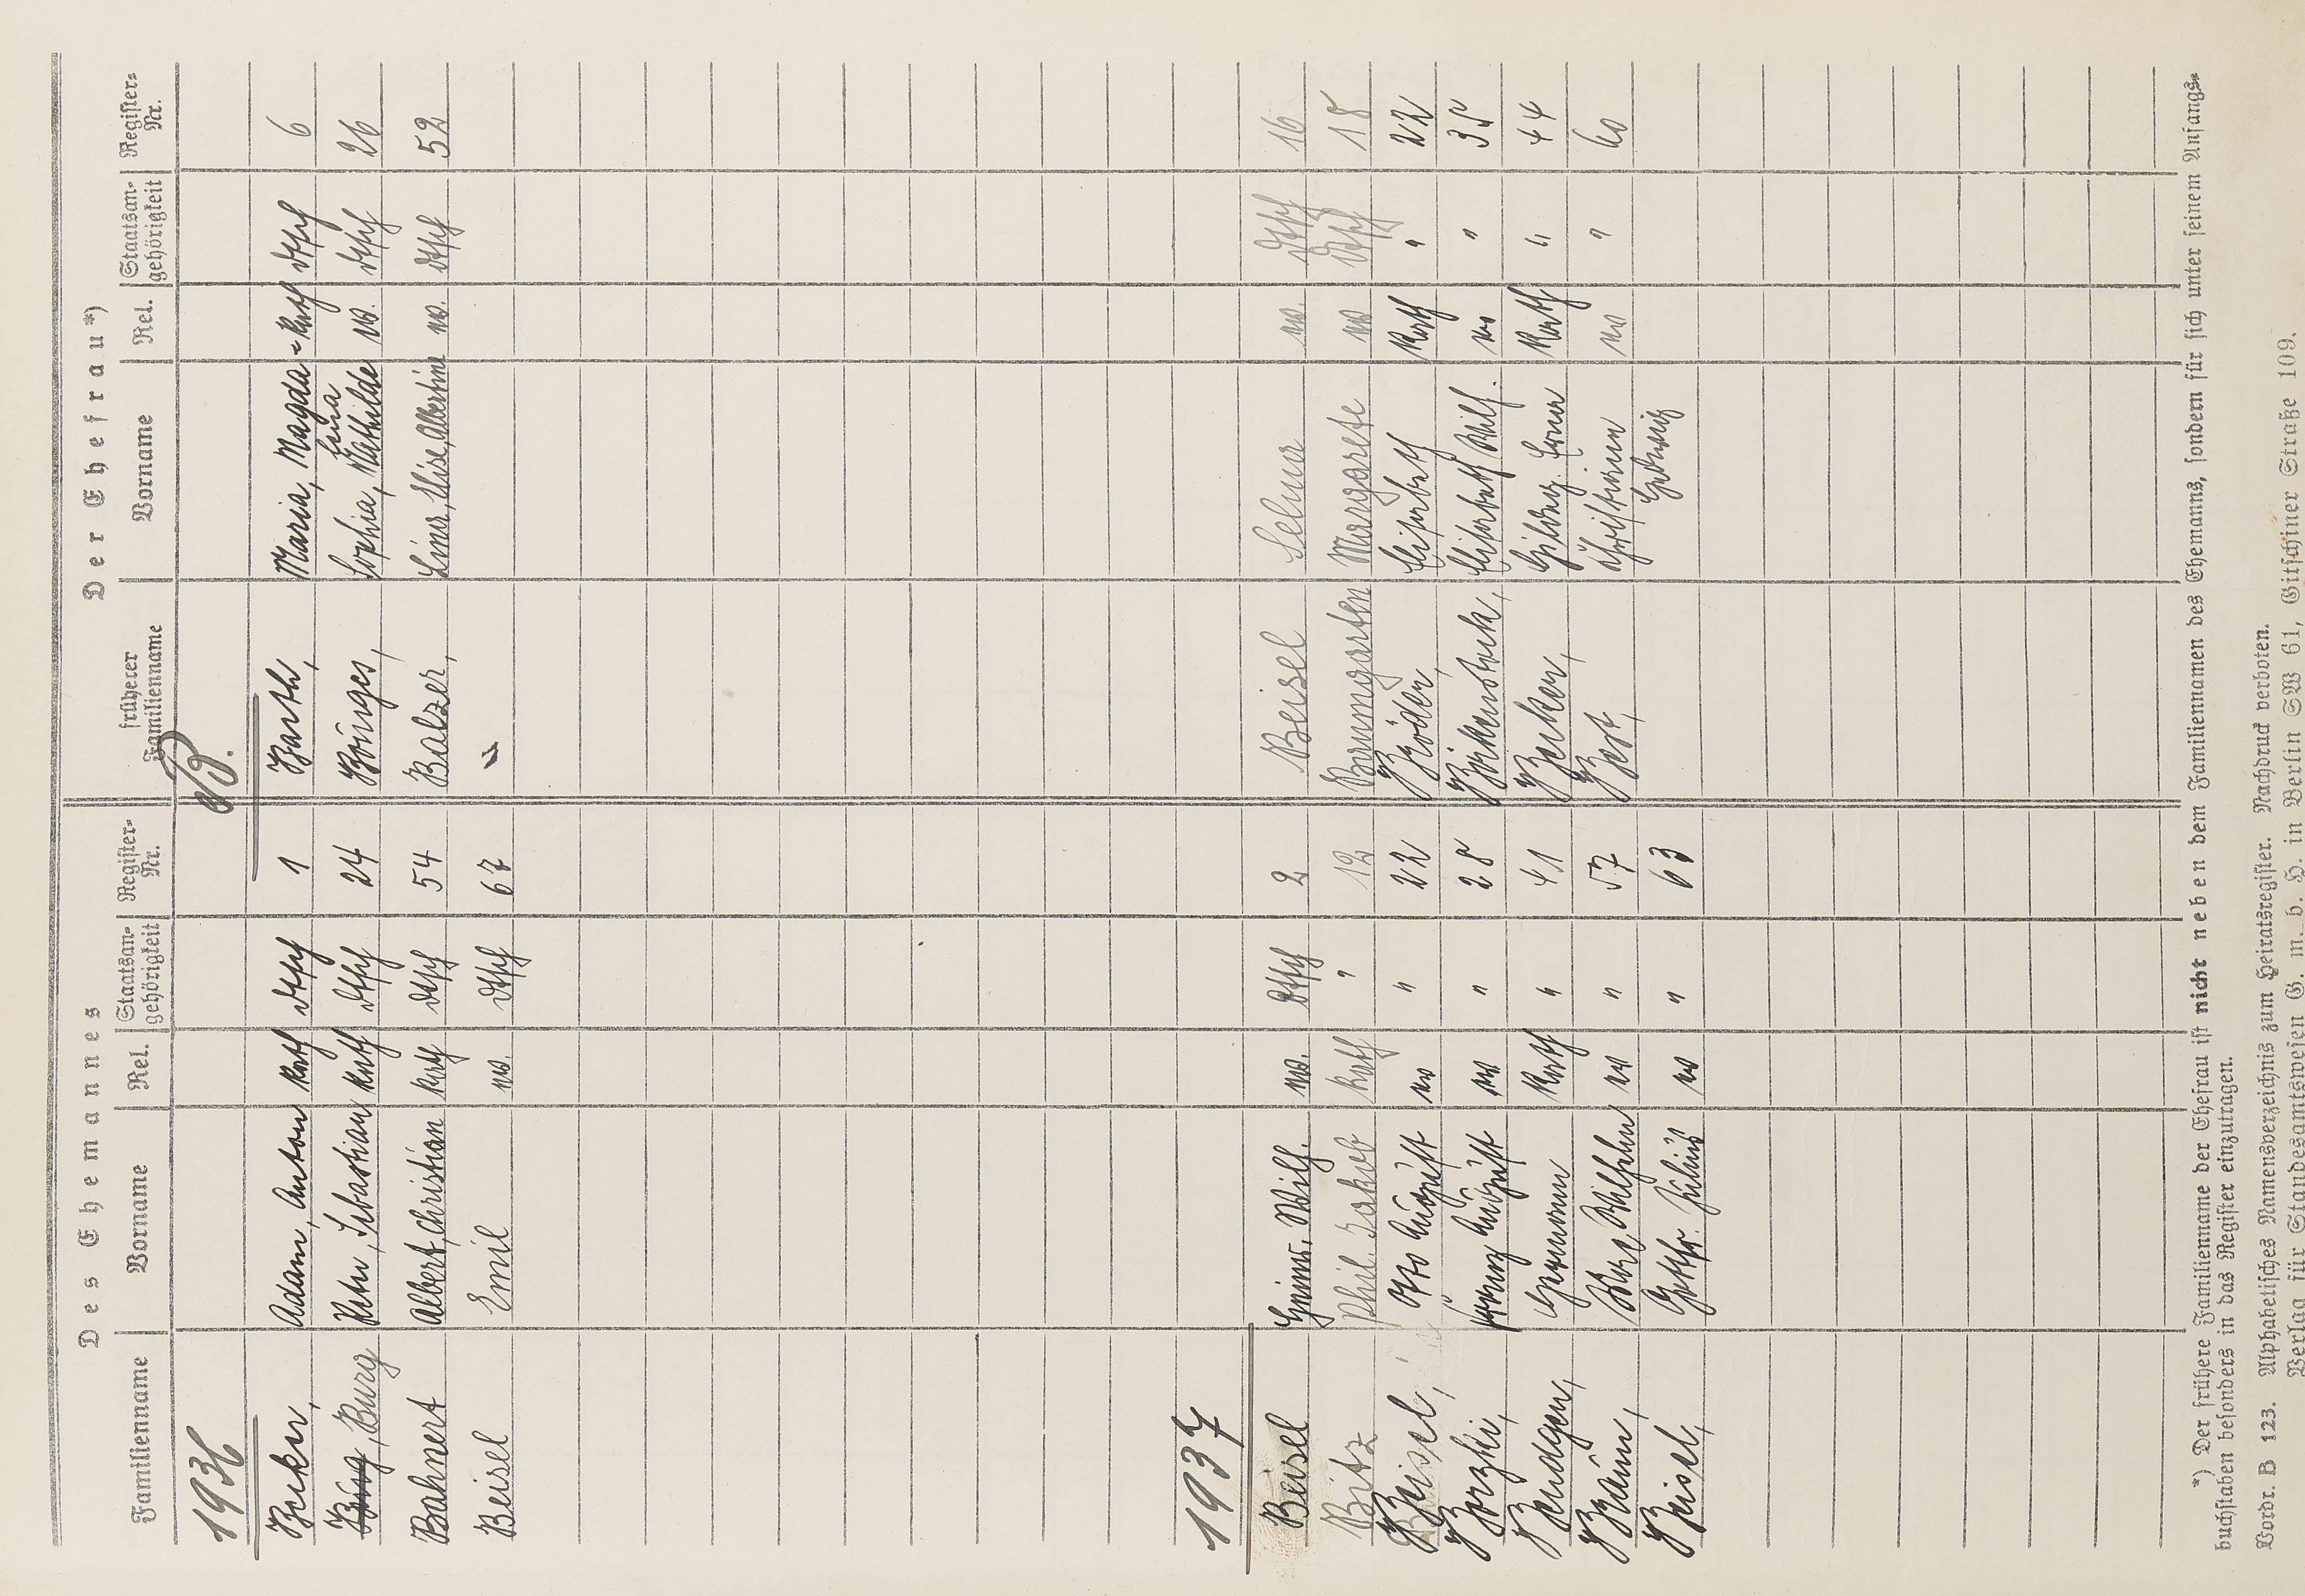 Des Ehemannes Der Ehefrau*)
Familienname Vorname Rel. Staatsan- gehörigkeit Register- Nr. früherer Familienname Vorname Rel. Staatsan- gehörigkeit Register- Nr.
1936 B.
Becker, Adam, Anton kath dtsch 1 Barth, Maria, Magda- kath dtsch 6
lena
Burg, Sebastian kath dtsch 24 Bönges, Sophia, Mathilde ev. dtsch 26
Bahnert Albert, Christian kath dtsch 54 Balzer, Lina, Elise, Albertine ev. dtsch 52
Beisel Emil ev. dtsch 67
1937
Beisel Heinr. Wilh. ev. dtsch 2 Beisel Selma ev. dtsch 16
Bitz Phil. Jakob kath " 12 Baumgarten Margarete ev dtsch 18
Beisel, Otto August ev " 22 Bröder, Elisabeth Kath " 22
Franz August ev " 28 Birkenstock, Elisabeth Wilh. ev " 35
Bendgen, Hermann Kath " 41 Becker, Hildeg. Erna Kath " 44
Braun, Wilhelm ev " 57 Best, Christiane ev " 60
Hedwig
Beisel, Gottfr. Julius ev " 63
*) Der frühere Familienname der Ehefrau ist nicht neben dem Familiennamen des Ehemanns, sondern für sich unter seinem Anfangs-
buchstaben besonders in das Register einzutragen.
Vordr. B 123. Alphabetisches Namensverzeichnis zum Heiratsregister. Nachdruck verboten.
Verlag für Standesamtswesen G. m. b. H. in Berlin SW 61, Gitschiner Straße 109.